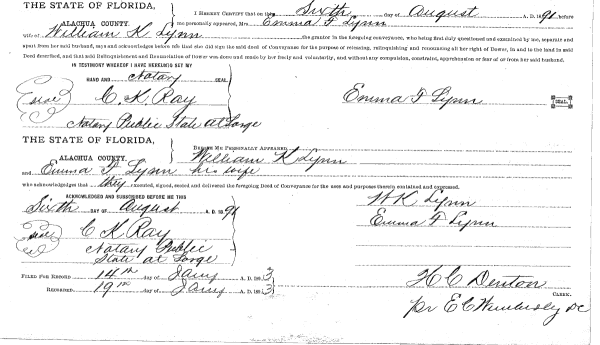 THE STATE OF FLORIDA,
ALACHUA COUNTY.
I HEREBY CERTIFY that on this Sixth day of August A. D. 1891 before
me personally appeared, Mrs. Emma F Lynn
wife of William K Lynn the grantor in the foregoing conveyance, who being first duly questioned and examined by me, separate and
apart from her said husband, says and acknowledges before me that she did sign the said deed of Conveyance for the purpose of releasing, relinquishing and renouncing all her right of Dower, in and to the land in said
Deed described, and that said Relinquishment and Renunciation of dower was done and made by her freely and voluntarily, and without any compulsion, constraint, apprehension or fear of or from her said husband.
IN TESTIMONY WHEREOF I HAVE HEREUNTO SET MY
HAND AND Notary SEAL,
Seal C. K. Ray Emma F Lynn SEAL.
Notary Public State at Large
THE STATE OF FLORIDA,
ALACHUA COUNTY.
BEFORE ME PERSONALLY APPEARED William K Lynn
and Emma F Lynn his wife
who acknowledged that they executed, signed, sealed and delivered the foregoing Deed of Conveyance for the uses and purposes therein contained and expressed.
ACKNOWLEDGED AND SUBSCRIBED BEFORE ME THIS
W K Lynn
Sixth DAY OF August A. D. 1891
Emma F Lynn
Seal C K Ray
Notary Public
State at Large
FILED FOR RECORD 14th day of Jany A. D. 1893
RECORDED 19th day of Jany A. D. 1893
H C Denton
CLERK.
pr E C Wimberly DC